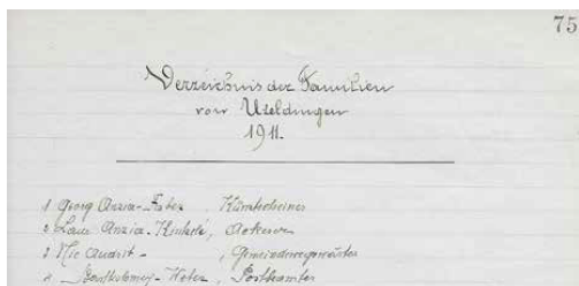 75
Verzeichnis der Familien
von Useldingen
1911.
1 Georg Anzia-Faber,
2 Anzia-Kinkelé, Ackerer
3 Nic Audrit - , Gemeindewegewärter
4 Bartholomey-Weber, Postbeamter